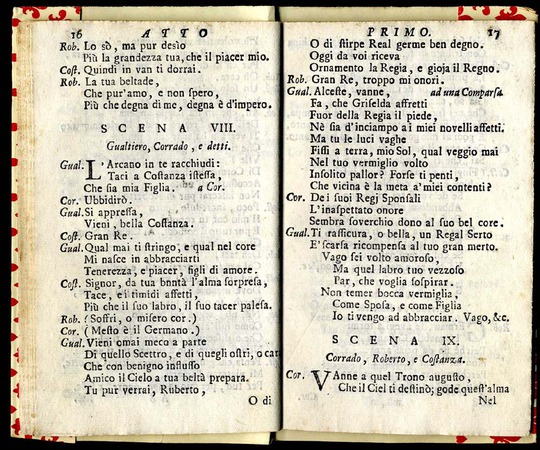 16 ATTO
Rob. Lo sò, ma pur desìo
Più la grandezza tua, che il piacer mio.
Cost. Quindi in van ti dorrai.
Rob. La tua beltade,
Che pur'amo, e non spero,
Più che degna di me, degna è d'impero.
SCENA VIII.
Gualtiero, Corrado, e detti.
Gual. L'Arcano in te racchiudi:
Taci a Costanza istessa,
Che sia mia Figlia. a Cor.
Cor. Ubbidirò.
Gual. Si appressa,
Vieni, bella Costanza.
Cost. Gran Re.
Gual. Qual mai ti stringo, e qual nel core
Mi nasce in abbracciarti
Tenerezza, e piacer, figli di amore.
Cost. Signor, da tua bontà l'alma sorpresa,
Tace, e i timidi affetti,
Più che il suo labro, il suo tacer palesa.
Rob. (Soffri, o misero cor.)
Cor. (Mesto è il Germano.)
Gual. Vieni omai meco a parte
Di quello Scettro, e di quegli ostri, o car
Che con benigno influsso
Amico il Cielo a tua beltà prepara.
Tu pur verrai, Ruberto,
O di
PRIMO. 17
O di stirpe Real germe ben degno.
Oggi da voi riceva
Ornamento la Regia, e gioja il Regno.
Rob. Gran Re, troppo mi onori.
Gual. Alceste, vanne, ad una Comparsa.
Fa, che Griselda affretti
Fuor della Regia il piede,
Nè sia d'inciampo ai miei novelli affetti.
Ma tu le luci vaghe
Fissi a terra, mio Sol, qual veggio mai
Nel tuo vermiglio volto
Insolito pallor? Forse ti penti,
Che vicina è la meta a' miei contenti?
Cor. De i suoi Regj Sponsali
L'inaspettato onore
Sembra soverchio dono al suo bel core.
Gual. Ti rassicura, o bella, un Regal Serto
E' scarsa ricompensa al tuo gran merto.
Vago sei volto amoroso,
Ma quel labro tuo vezzoso
Par, che voglia sospirar.
Non temer bocca vermiglia,
Come Sposa, e come Figlia
Io ti vengo ad abbracciar. Vago, &c.
SCENA IX.
Corrado, Roberto, e Costanza.
Cor. VAnne a quel Trono augusto,
Che il Ciel ti destinò; gode quest'alma
Nel